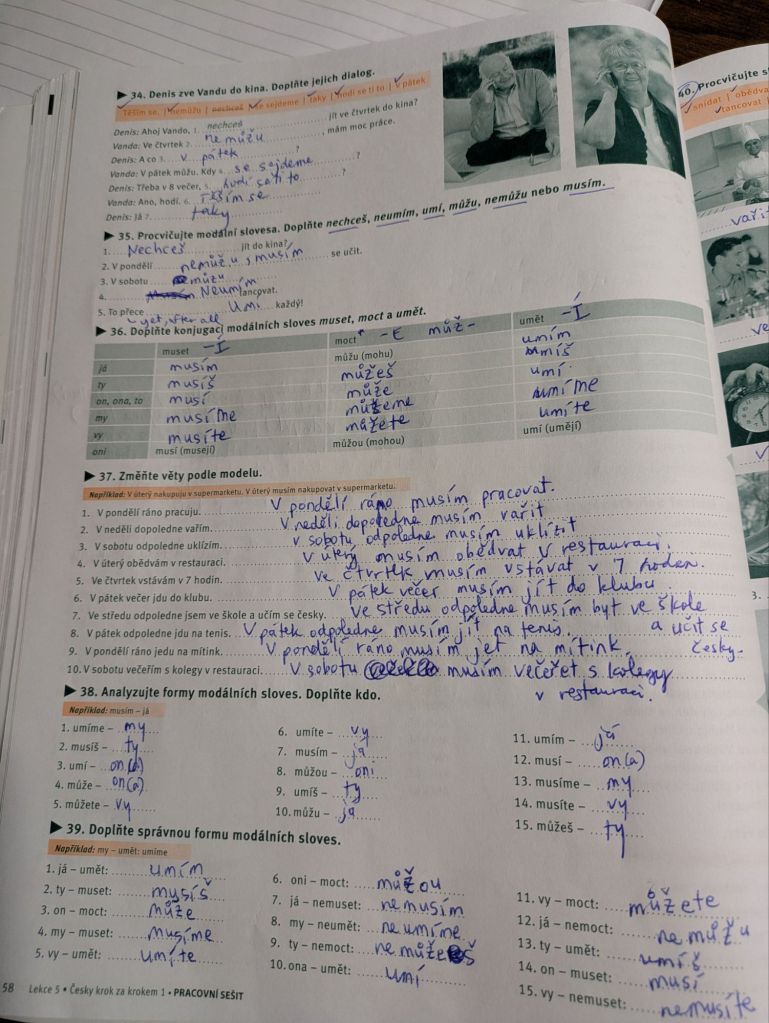 ▶ 34. Denis zve Vandu do kina. Doplňte jejich dialog.
Těším se. | nemůžu | nechceš | se sejdeme | taky | hodí se ti to | v pátek
Denis: Ahoj Vando, 1. nechceš jít ve čtvrtek do kina?
Vanda: Ve čtvrtek 2. nemůžu, mám moc práce.
Denis: A co 3. v pátek?
Vanda: V pátek můžu. Kdy 4. se sejdeme?
Denis: Třeba v 8 večer, 5. hodí se ti to?
Vanda: Ano, hodí. 6. Těším se
Denis: Já 7. taky
▶ 35. Procvičujte modální slovesa. Doplňte nechceš, neumím, umí, můžu, nemůžu nebo musím.
1. Nechceš jít do kina?
2. V pondělí nemůžu, musím se učit.
3. V sobotu můžu
4. Neumím tancovat.
5. To přece umí každý!
yet, after all
▶ 36. Doplňte konjugaci modálních sloves muset, moct a umět.
muset -Í moct -E můž- umět -Í
já musím můžu (mohu) umím
ty musíš můžeš umíš
on, ona, to musí může umí
my musíme můžeme umíme
vy musíte můžete umíte
oni musí (musejí) můžou (mohou) umí (umějí)
▶ 37. Změňte věty podle modelu.
Například: V úterý nakupuju v supermarketu. V úterý musím nakupovat v supermarketu.
1. V pondělí ráno pracuju. V pondělí ráno musím pracovat.
2. V neděli dopoledne vařím. V neděli dopoledne musím vařit
3. V sobotu odpoledne uklízím. v sobotu odpoledne musím uklízit
4. V úterý obědvám v restauraci. v úterý musím obědvat v restauraci.
5. Ve čtvrtek vstávám v 7 hodin. ve čtvrtek musím vstávat v 7 hoden.
6. V pátek večer jdu do klubu. V pátek večer musím jít do klubu
7. Ve středu odpoledne jsem ve škole a učím se česky. ve středu odpoledne musím byt ve škole
a učit se
česky.
8. V pátek odpoledne jdu na tenis. V pátek odpoledne musím jít na tenis.
9. V pondělí ráno jedu na mítink. V pondělí ráno musím jet na mítink.
10. V sobotu večeřím s kolegy v restauraci. v sobotu musím večeřet s kolegy
v restauraci.
▶ 38. Analyzujte formy modálních sloves. Doplňte kdo.
Například: musím – já
1. umíme – my
2. musíš – ty
3. umí – on(a)
4. může – on(a)
5. můžete – vy
6. umíte – vy
7. musím – já
8. můžou – oni
9. umíš – ty
10. můžu – já
11. umím – já
12. musí – on(a)
13. musíme – my
14. musíte – vy
15. můžeš – ty
▶ 39. Doplňte správnou formu modálních sloves.
Například: my – umět: umíme
1. já – umět: umím
2. ty – muset: mysíš
3. on – moct: může
4. my – muset: musíme
5. vy – umět: umíte
6. oni – moct: můžou
7. já – nemuset: nemusím
8. my – neumět: neumíme
9. ty – nemoct: nemůžeš
10. ona – umět: umí
11. vy – moct: můžete
12. já – nemoct: nemůžu
13. ty – umět: umíš
14. on – muset: musí
15. vy – nemuset: nemusíte
58 Lekce 5 • Česky krok za krokem 1 • PRACOVNÍ SEŠIT
40. Procvičujte
snídat | obědva
tancovat
vaři